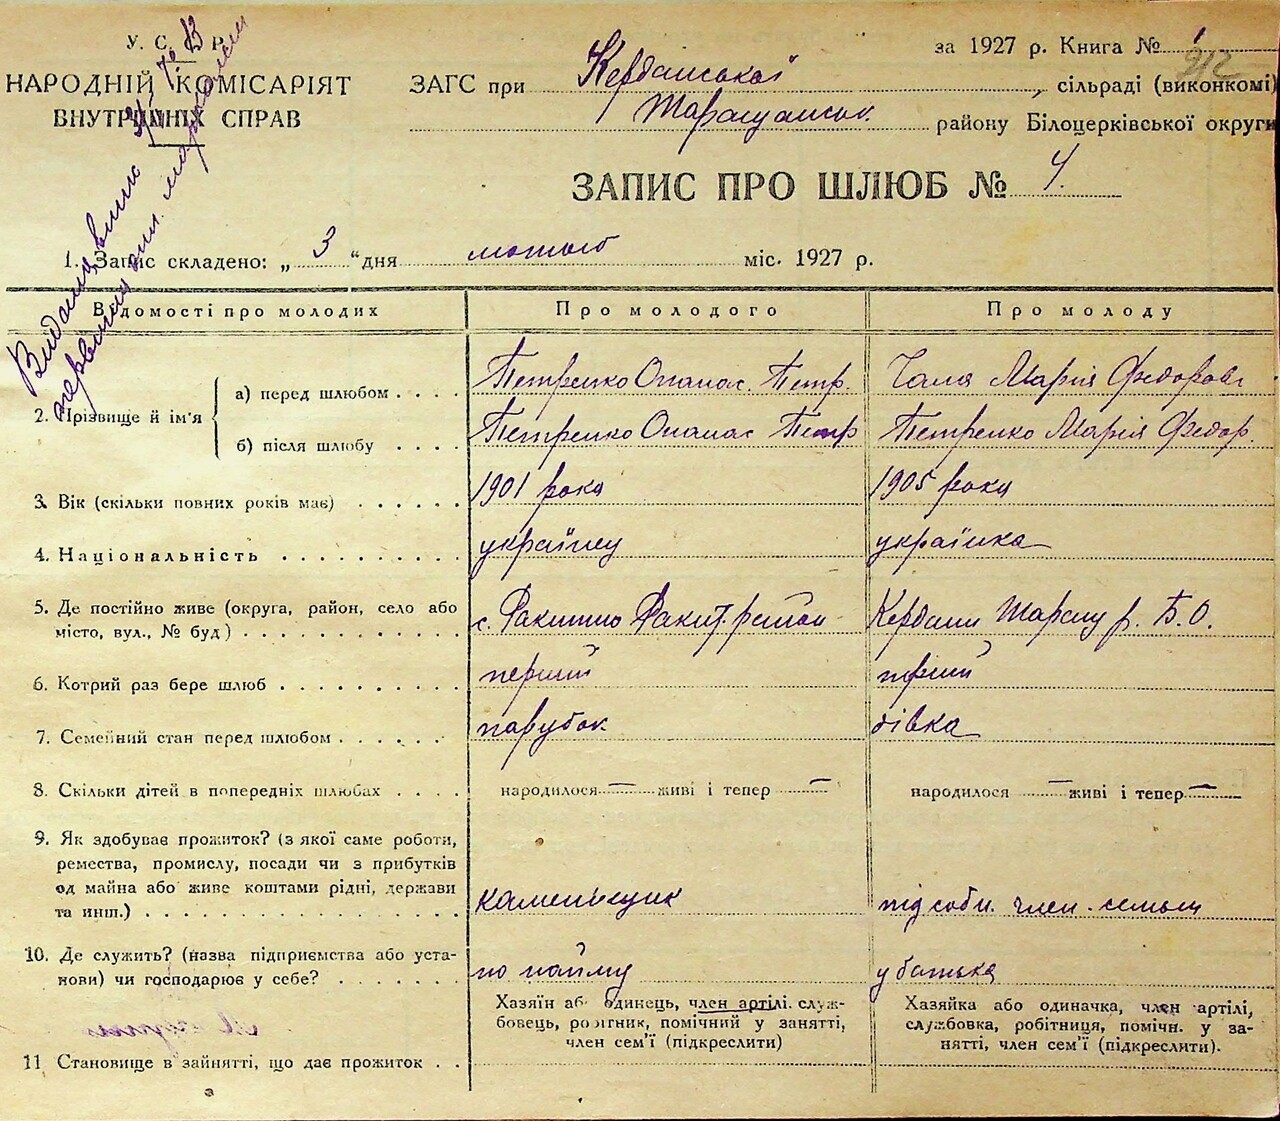 У. С. Р. Р.
НАРОДНІЙ КОМІСАРІЯТ
ВНУТРІШНІХ СПРАВ
за 1927 р. Книга № 1
912
ЗАГС при Керданської сільраді (виконкомі)
Таращанськ. району Білоцерківської округи
ЗАПИС ПРО ШЛЮБ № 4.
1. Запис складено: „ 3 “ дня лютого міс. 1927 р.
Відомості про молодих Про молодого Про молоду
2. Прізвище й ім'я
а) перед шлюбом . . . . Петренко Опанас. Петр. Чала Марія Федоровн
б) після шлюбу . . . . Петренко Опанас Петр Петренко Марія Федор.
3. Вік (скільки повних років має) . . . . . . 1901 рока 1905 рока
4. Національність . . . . . . . . . . українец українка
5. Де постійно живе (округа, район, село або
місто, вул., № буд) . . . . . . . . . . . . с. Ракитно Ракит. район Кердани Таращ р. Б. О.
6. Котрий раз бере шлюб . . . . . . . . . . перший перший
7. Семейний стан перед шлюбом . . . . . . парубок дівка
8. Скільки дітей в попередніх шлюбах . . . . народилося — живі і тепер — народилося — живі і тепер —
9. Як здобуває прожиток? (з якої саме роботи,
ремества, промислу, посади чи з прибутків
од майна або живе коштами рідні, держави
та инш.) . . . . . . . . . . . . . . . . . каменьщик підсобн. член. семьи
10. Де служить? (назва підприємства або уста-
нови) чи господарює у себе? . . . . . . . по найму у батька
Хазяїн або одинець, член артілі, служ-
бовець, робітник, помічний у занятті,
член сем'ї (підкреслити)
Хазяйка або одиначка, член артілі,
службовка, робітниця, помічн. у за-
нятті, член сем'ї (підкреслити).
11 Становище в зайнятті, що дає прожиток . .